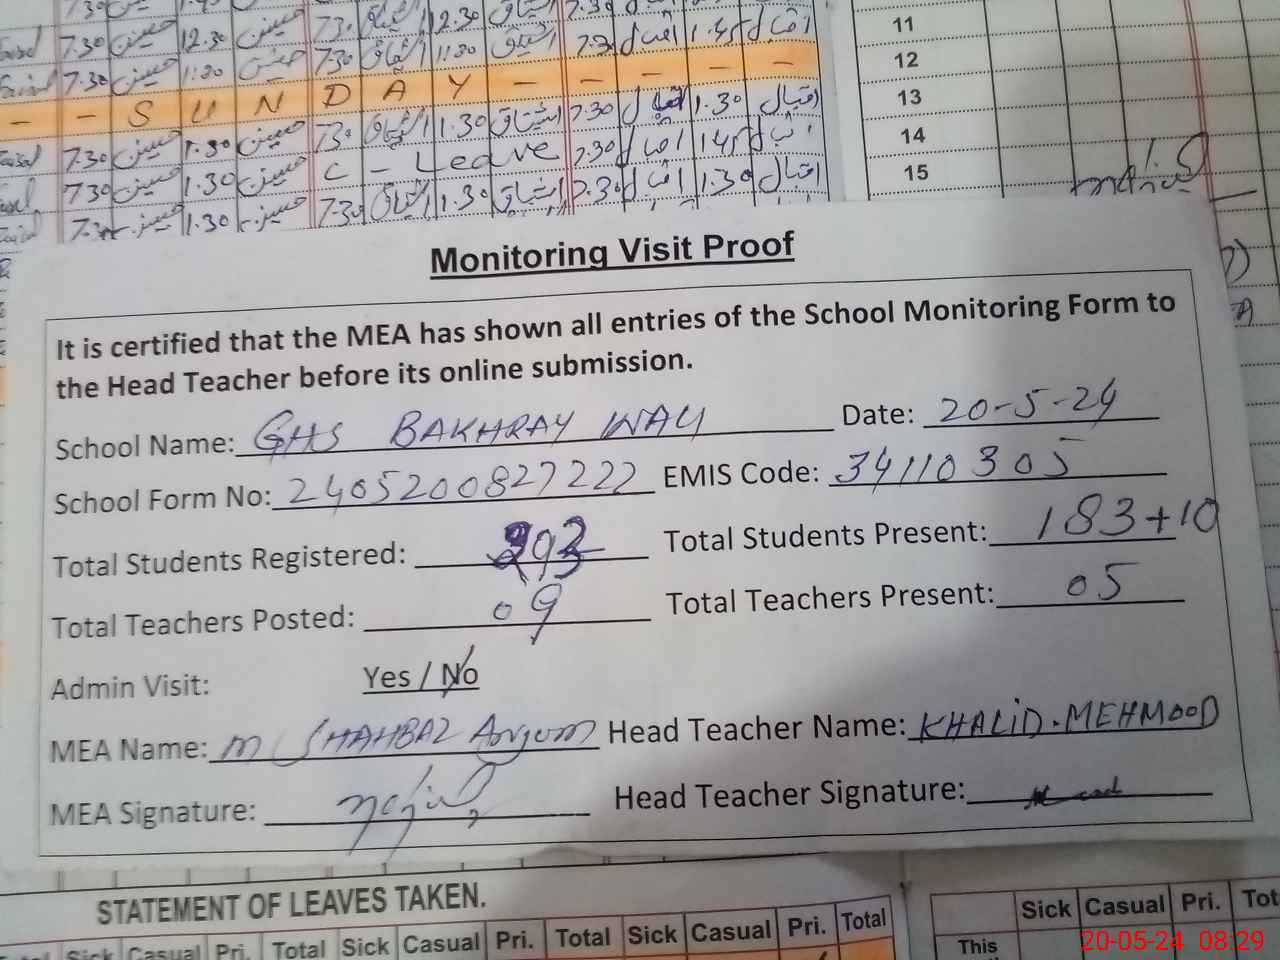 7.30 12.30 7.30 اشتیاق 12.30 اشتیاق 7.30
7.30 حسین 1:30 7.30 اشتیاق 11:30 اشتیاق 7.30 اقبال 1.45 اقبال
- - S U N D A Y - - - - -
7.30 حسین 1.30 حسین 7.30 اشتیاق 1.30 اشتیاق 7.30 اقبال 1.30 اقبال
7.30 حسین 1.30 حسین C - Leave 7.30 اقبال 1.45 اقبال
7.30 1.30 حسین 7.30 اشتیاق 1.30 اشتیاق 7.30 اقبال 1.30 اقبال
11
12
13
14
15
Monitoring Visit Proof
It is certified that the MEA has shown all entries of the School Monitoring Form to
the Head Teacher before its online submission.
School Name: GHS BAKHRAY WALI Date: 20-5-24
School Form No: 2405200827222 EMIS Code: 34110305
Total Students Registered: Total Students Present: 183+10
Total Teachers Posted: 09 Total Teachers Present: 05
Admin Visit: Yes / No
MEA Name: M SHAHBAZ Anjum Head Teacher Name: KHALID.MEHMOOD
MEA Signature: Head Teacher Signature:
STATEMENT OF LEAVES TAKEN.
Sick Casual Pri. Total Sick Casual Pri. Total Sick Casual Pri. Total
Sick Casual Pri. Tot
This
20-05-24 08:29